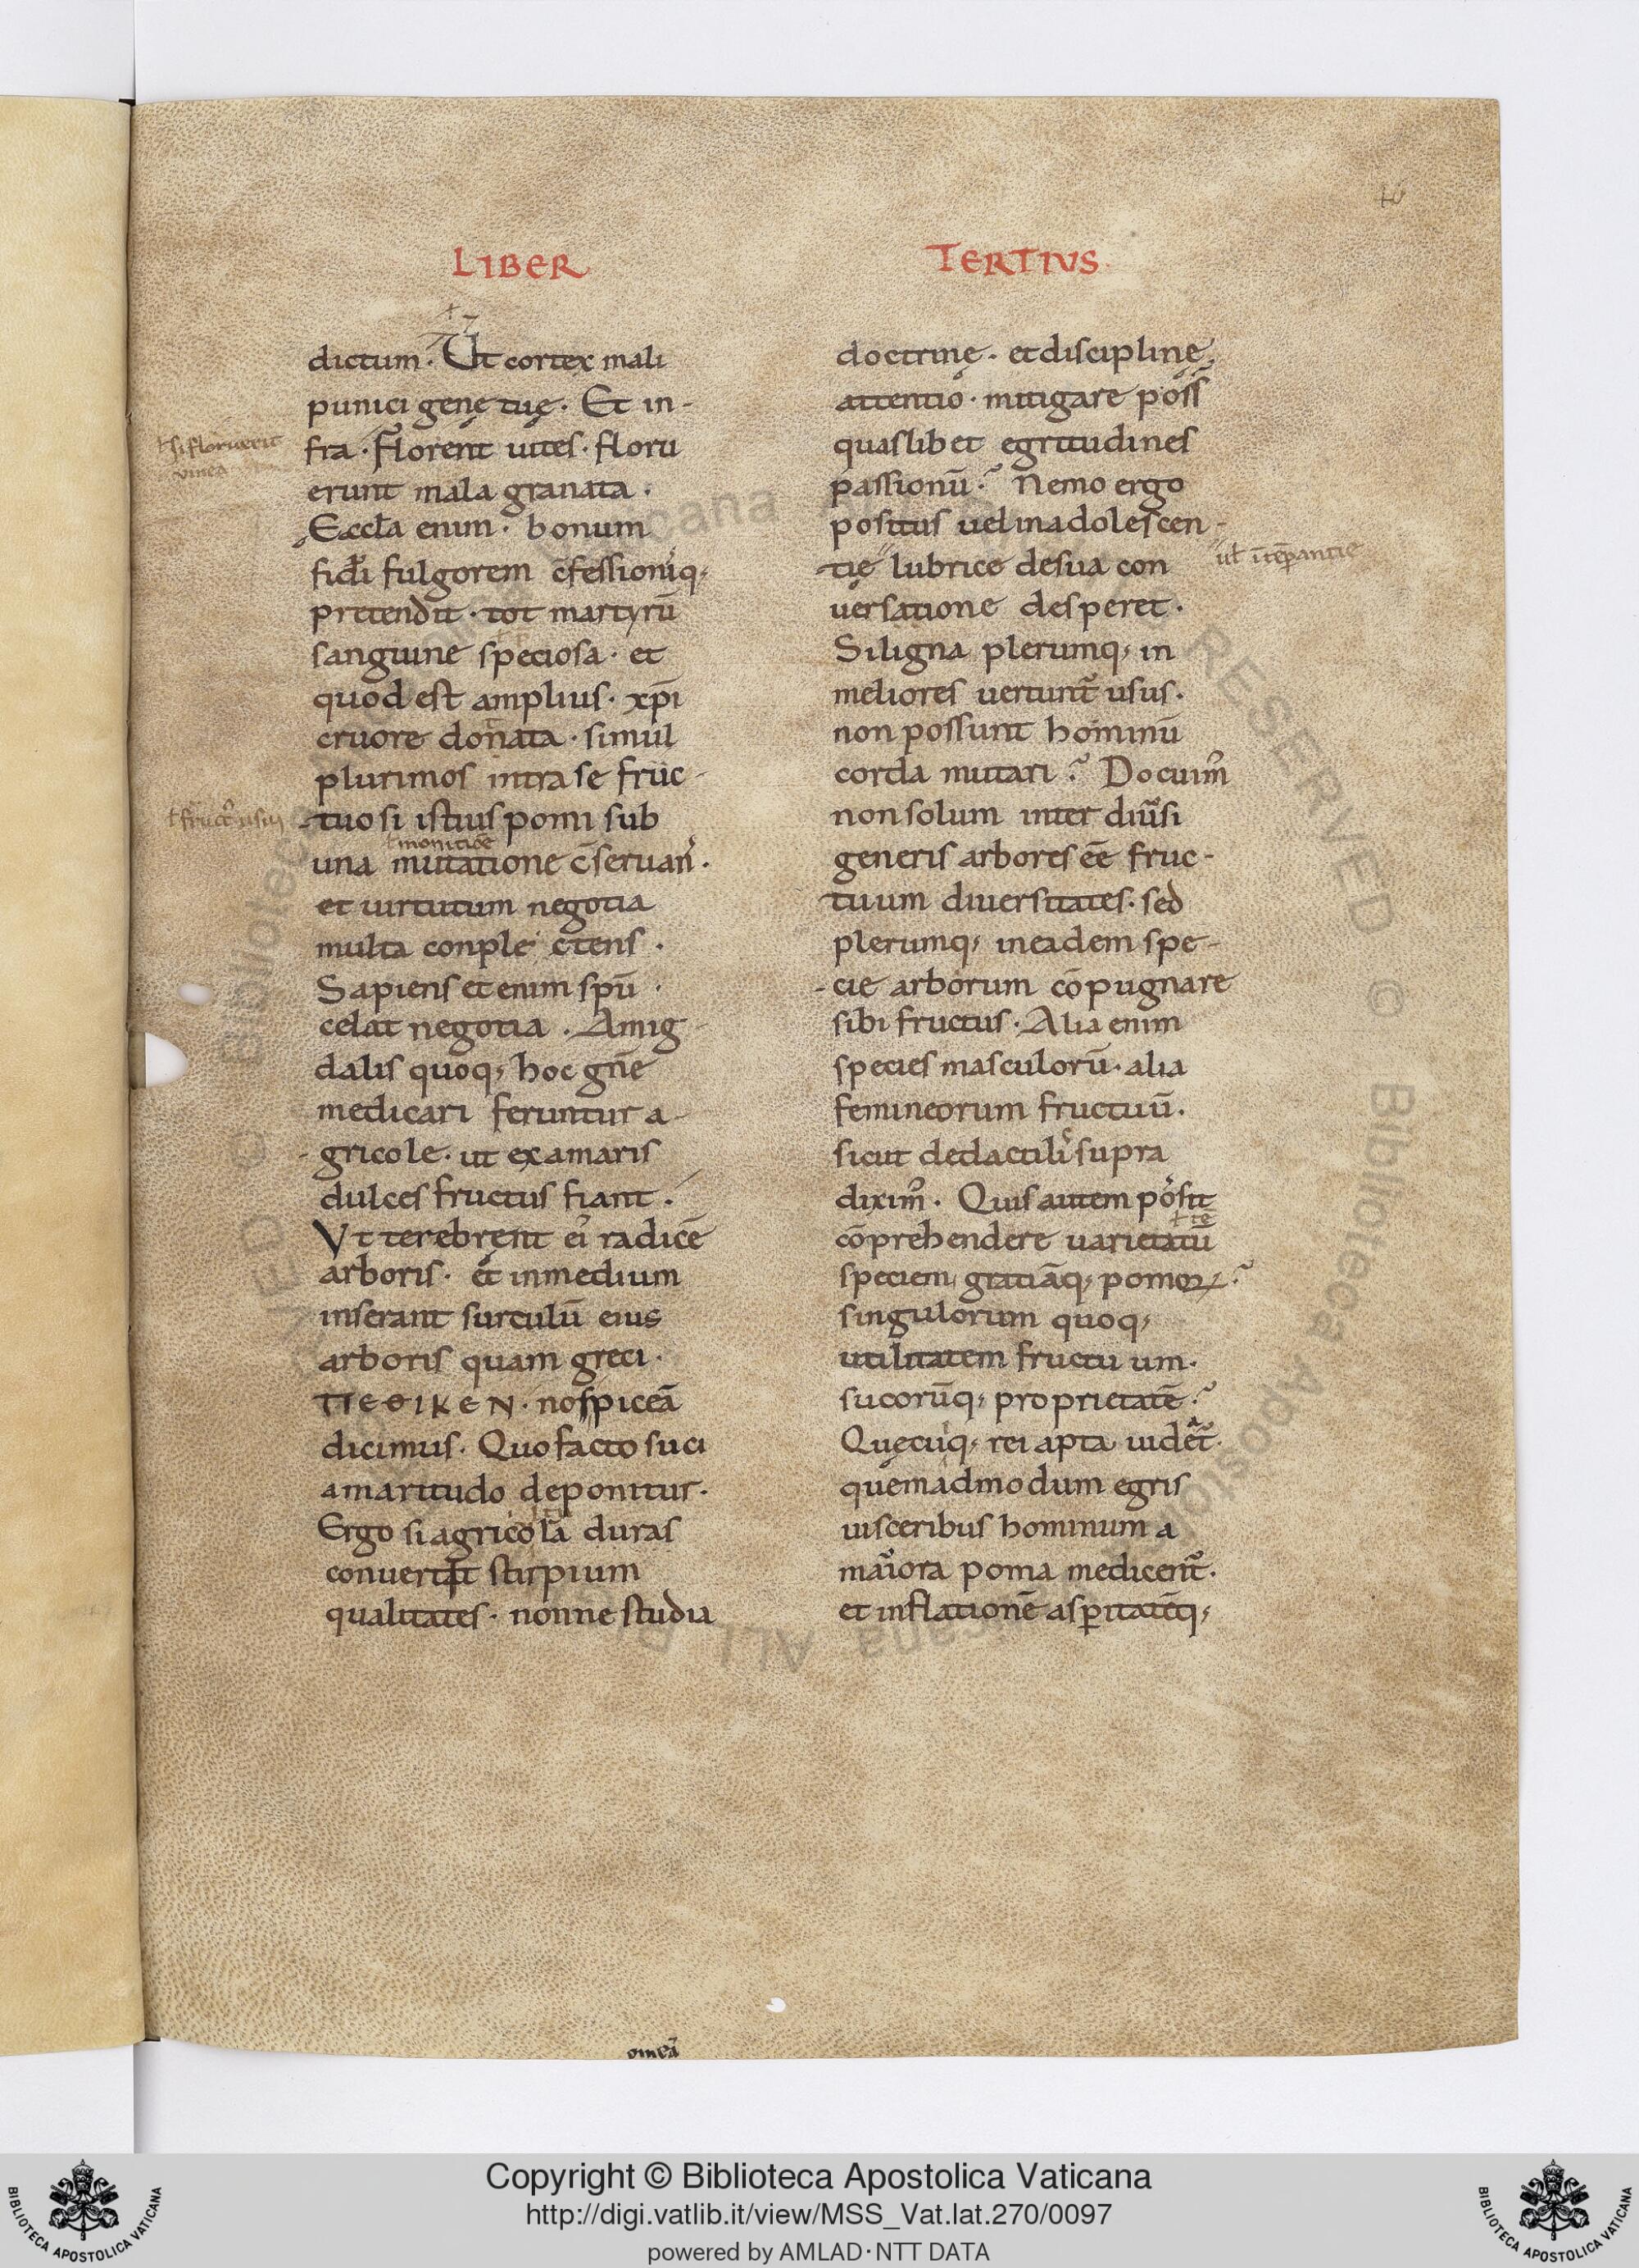 LIBER TERTIVS
dictum. Ut cortex mali
punici genę tuę. Et in-
fra. Florent uites. floru
erunt mala granata.
Eccƚa enim. bonum
fidei fulgorem c̄fessionisq;
pretendit. tot martyrū
sanguine speciosa. et
quod est amplius. xp̄i
cruore donata. simul
plurimos intra se fruc-
-tuosi istius pomi sub
monitiōe
una mutatione c̄seruans.
et uirtutum negotia
multa conple ctens.
Sapiens etenim spū
celat negotia. Amig-
dalis quoq; hoc gn̄e
medicari feruntur a-
-gricole. ut ex amaris
dulces fructus fiant.
Vt terebrent ei radicē
arboris. et in medium
inserant surculū eius
arboris quam greci.
ΠΕΘΙΚΕΝ. nos piceā
dicimus. Quo facto suci
amaritudo deponitur.
Ergo si agricola duras
conuertit stirpium
qualitates. nonne studia
doctrinę. et disciplinę.
attentio. mitigare poss
quaslibet egritudines
passionū? Nemo ergo
positus uel in adolescen-
-tię lubrice de sua con
uersatione desperet.
Si ligna plerumq; in
meliores uertunt̄ usus.
non possunt hominū
corda mutari? Docuim᾽
non solum inter diuersi
generis arbores eē fruc-
tuum diuersitates. sed
plerumq; in eadem spe-
-cie arborum cōpugnare
sibi fructus. Alia enim
species masculorū. alia
femineorum fructuū.
sicut de dactilis supra
dixim᾽. Quis autem possit
cōprehendere uarietatū
speciem, gratiāq; pomoꝝ?
singulorum quoq;
utilitatem fructuum.
sucorūq; proprietatē?
Quęcūq; rei apta uidet̄.
quemadmodum egris
uisceribus hominum a
mariora poma medicent̄.
et inflationē asꝑitatēq;
ƚ si floruerit
vinea
uƚ ītēperantie
Copyright © Biblioteca Apostolica Vaticana
http://digi.vatlib.it/view/MSS_Vat.lat.270/0097
powered by AMLAD·NTT DATA
BIBLIOTECA APOSTOLICA VATICANA
BIBLIOTECA APOSTOLICA VATICANA